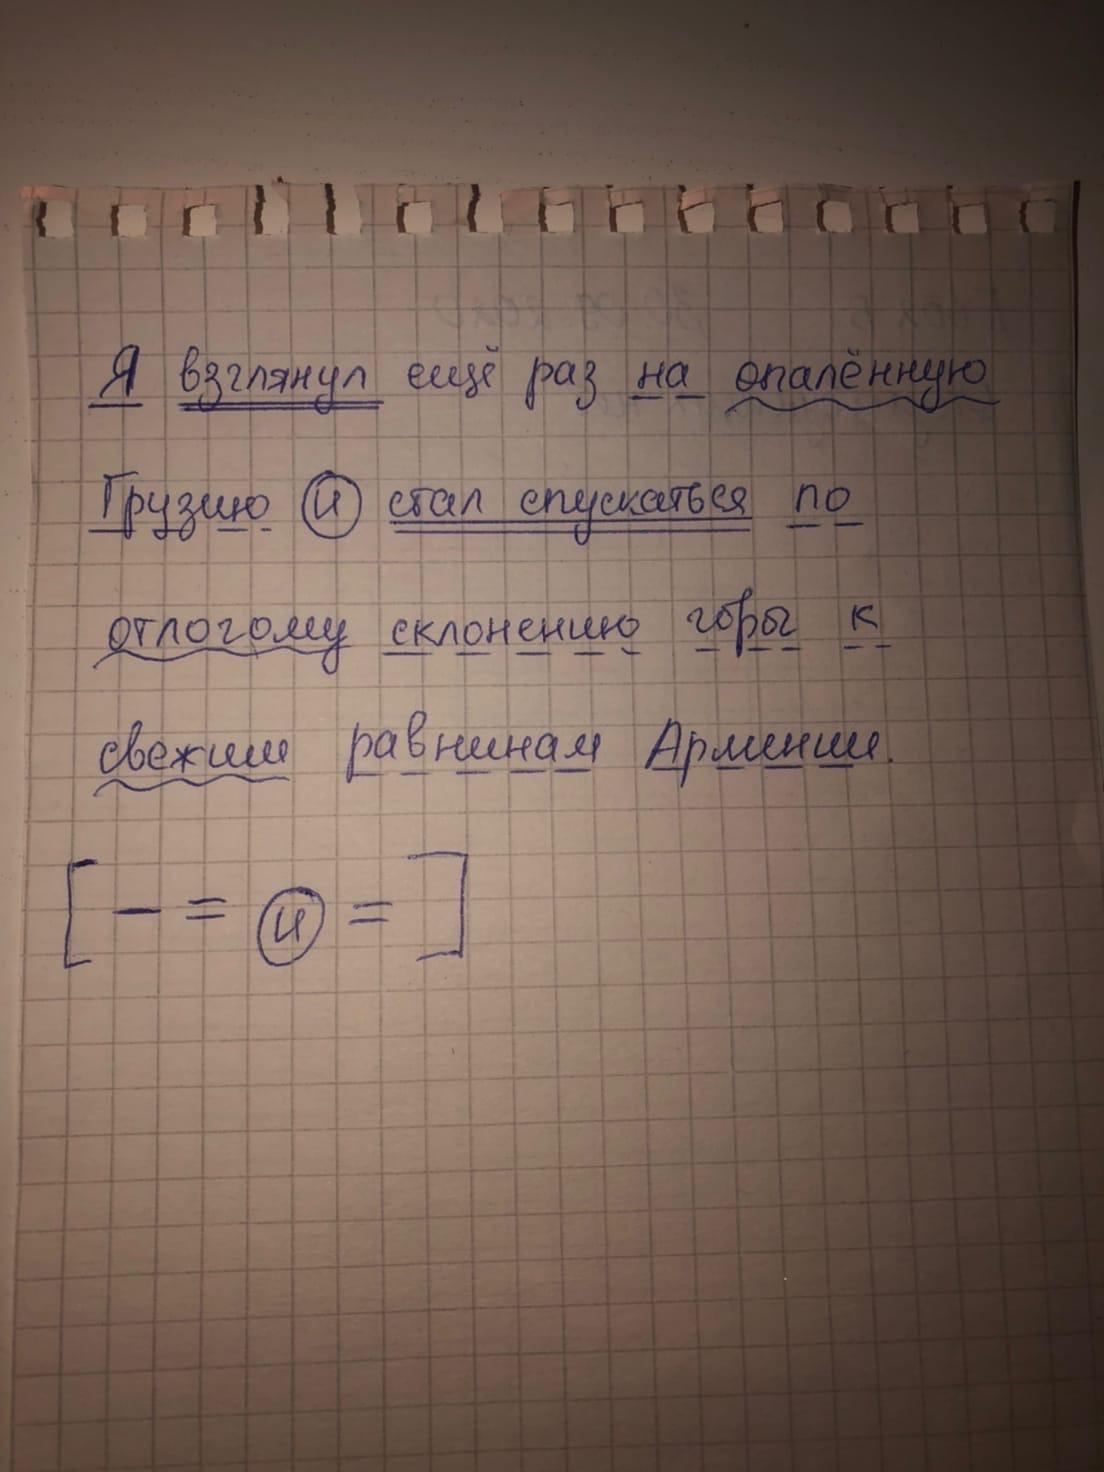 Я взглянул ещё раз на опалённую
Грузию и стал спускаться по
отлогому склонению горы к
свежим равнинам Армении.
[ – = и = ]